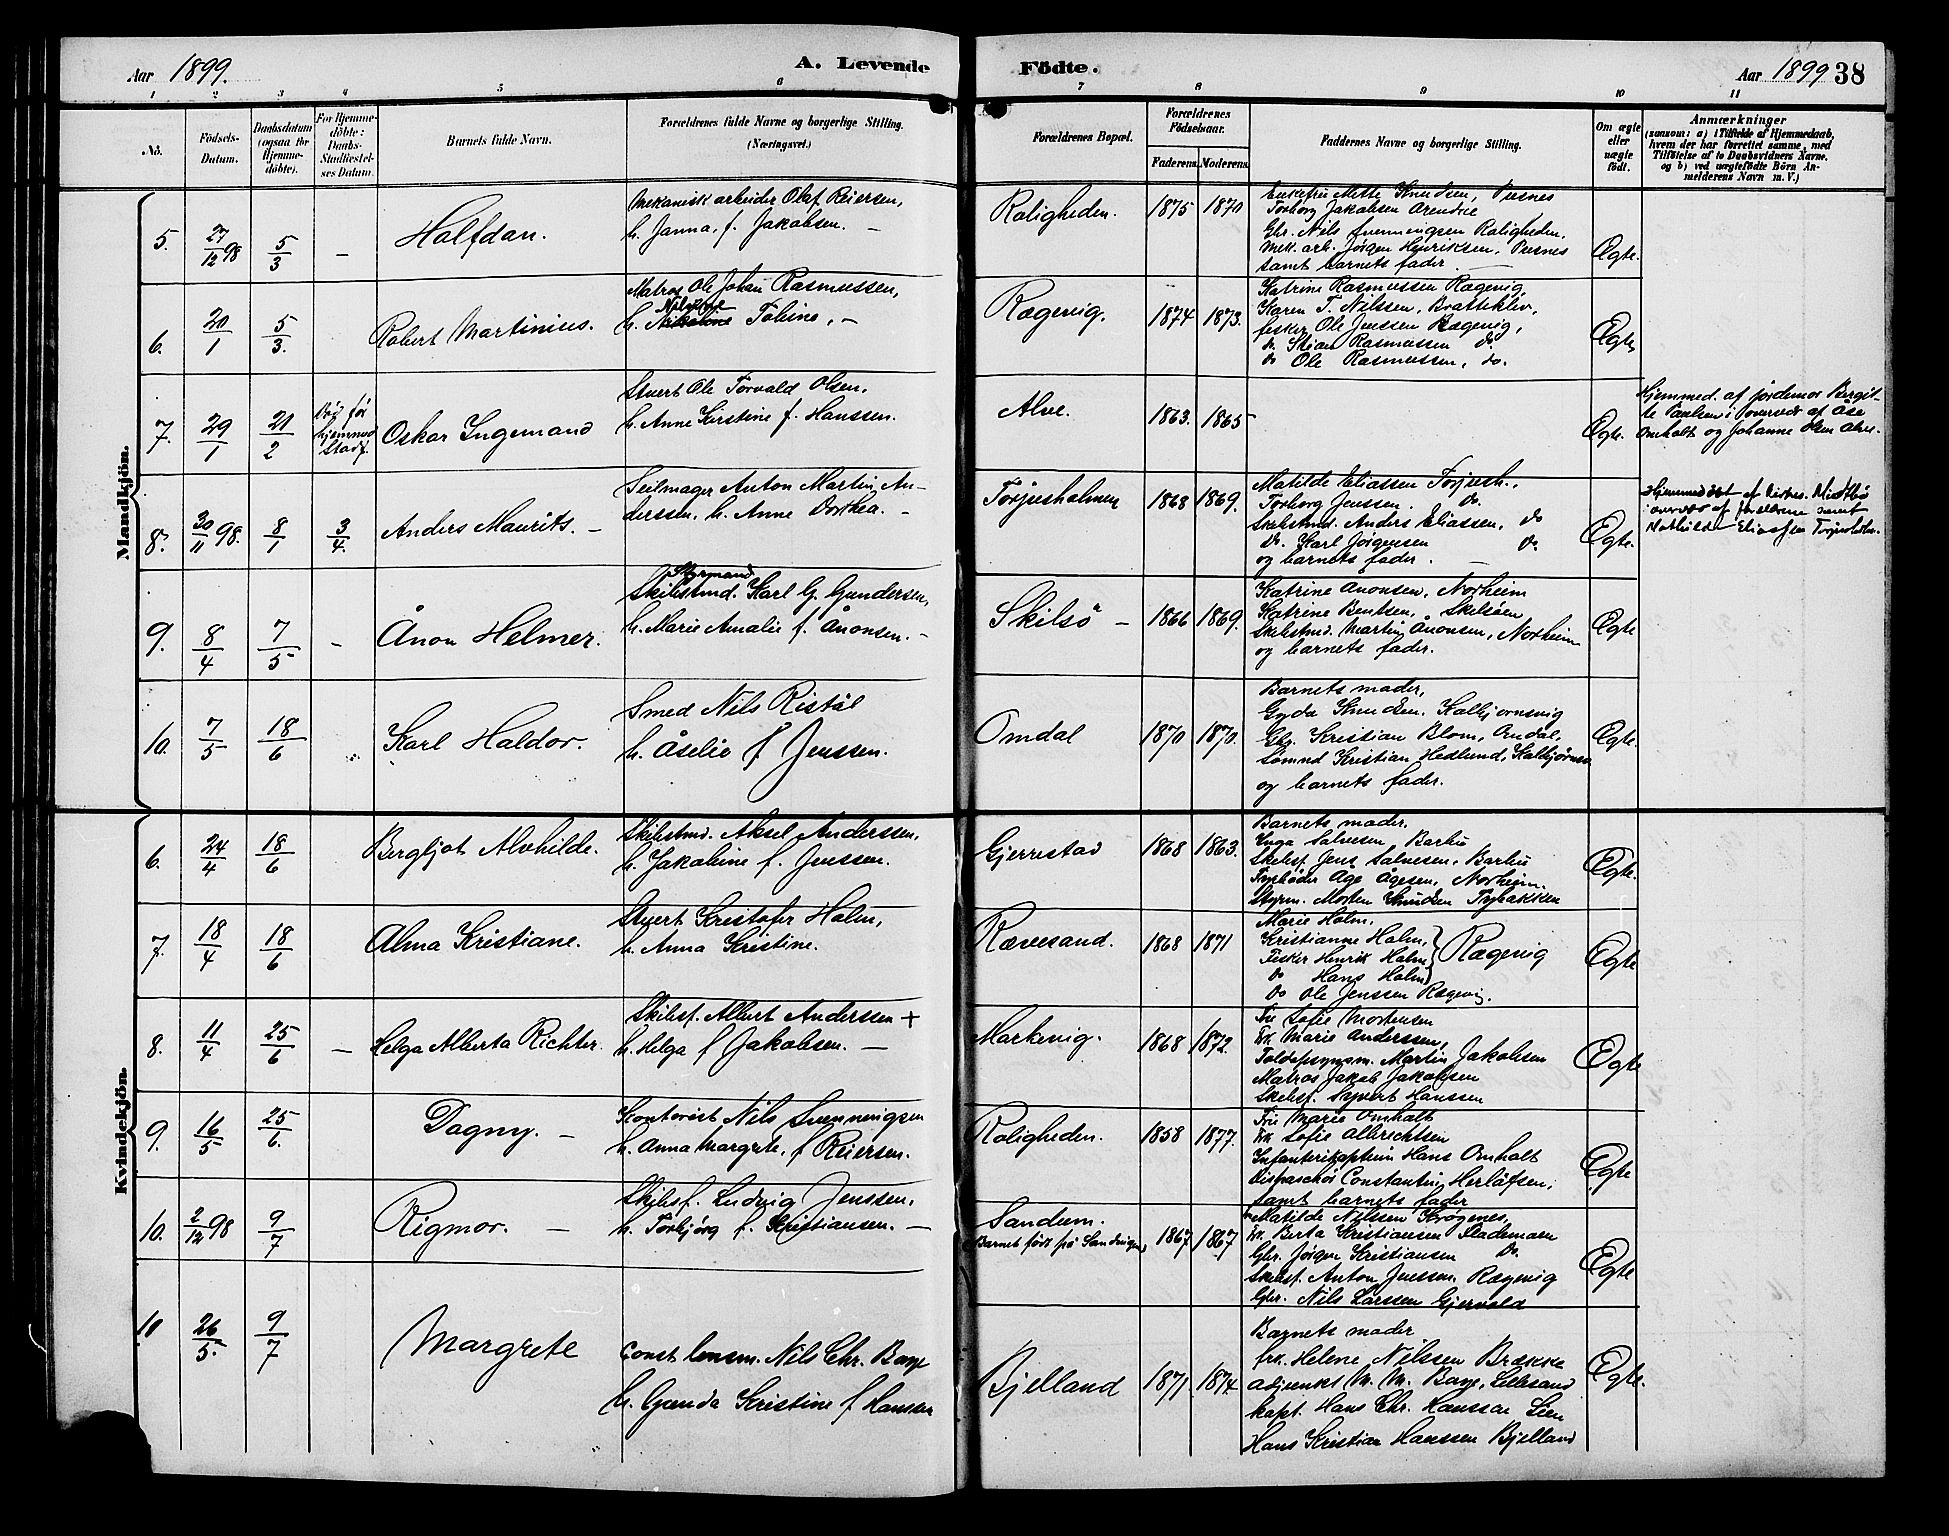 Aar 1899.
A. Levende
Födte.
Aar 1899 38
1 2 3 4 5 6 7 8 9 10 11
No.
Födsels-
Datum.
Daabsdatum
(ogsaa for
Hjemme-
döbte).
For Hjemme-
döbte:
Daabs-
Stadfæstel-
ses Datum.
Barnets fulde Navn.
Forældrenes fulde Navne og borgerlige Stilling.
(Næringsvei.)
Forældrenes Bopæl.
Forældrenes
Födselsaar.
Faderens. Moderens.
Faddernes Navne og borgerlige Stilling.
Om ægte
eller
uægte
födt.
Anmærkninger
(saasom: a) i Tilfælde af Hjemmedaab,
hvem der har forrettet samme, med
Tilföielse af to Daabsvidners Navne.
og b) ved uægtefödte Börn An-
melderens Navn m. V.)
Mandkjön.
5. 27/12 98 5/3 — Halfdan.
Mekanisk arbeider Olaf Reiersen,
h. Janna, f. Jakobsen. —
Roligheden. 1875 1870
Enkefru Mette Knudsen, Pusnes
Torborg Jakobsen Arendal
Gbr. Nils Svenningsen Roligheden.
Mek. arb. Jørgen Henriksen, Pusnes
samt barnets fader
Ægte.
6. 20/1 5/3. Robert Martinius.
Matros Ole Johan Rasmussen,
h. Tobine, —
Rægevig. 1874 1873.
Katrine Rasmussen Rægevig
Karen T. Nilssen, Bratteklev,
fisker Ole Jenssen Rægevig,
do. Stian Rasmussen do.
do Ole Rasmussen, do.
Ægte
7. 29/1 21/2
før
hjemmed
stadf.
Oskar Ingemand
Stuert Ole Torvald Olsen.
h. Anne Kirstine f. Hanssen.
Alve. 1863. 1865
Ægte.
Hjemmed. af jordemor Bergit-
te Paulsen i overvær af Åse
Omholt og Johanne Olsen Alve.
8. 30/11 98. 8/1 3/4. Anders Maurits. —
Seilmager Anton Martin An-
derssen, h. Anne Dorthea. —
Torjusholmen 1868 1869.
Matilde Eliassen Torjush.,
Torborg Jenssen. do.
Skibstmd. Anders Eliassen, do
Do. Karl Jørgensen do.
og barnets fader. —
Ægte.
Hjemmedøbt af
i overvær af forældrene samt
Mathilde Eliassen Torjusholm.
9. 8/4 7/5 — Ånon Helmer.
Styrmand
Skibstmd. Karl G. Gundersen,
h. Marie Amalie f. Ånonsen. —
Skilsø — 1866 1869.
Katrine Anonsen, Norheim
Katrine Bentsen, Skilsøen
Skibstmd. Martin Ånonsen, Norheim
og barnets fader.
Ægte
10. 7/5 18/6 Karl Haldor.
Smed Nils Ristøl
h. Åselie f Jenssen.
Omdal 1870 1870.
Barnets moder,
Gyda Knudsen. Kolbjørnsvig
Gbr. Kristian Blom, Omdal,
Sømnd Kristian Hedlund, Kolbjørnsv
og barnets fader.
Ægte.
Kvindekjön.
6. 24/4 18/6 Bergljot Alvhilde.
Skibstmd. Aksel Anderssen,
h. Jakobine f. Jenssen.
Gjerrestad 1868 1863.
Barnets moder.
Inga Salvesen Barbu
Skibsf. Jens Salvesen, Barbu
Åge Ågesen, Norheim.
Styrm. Morten Knudsen Fybakken
Ægte.
7. 18/4 18/6 Alma Kristiane.
Stuert Kristofer Holm,
h. Anna Kristine.
Rævesand. 1868 1871
Marie Holm.
Kristianne Holm,
Fisker Henrik Holm
Do Hans Holm
Rægevig
Do Ole Jenssen Rægevig.
Ægte
8. 11/4 25/6 — Helga Alberta Richter.
Skibsf. Albert Anderssen +
h. Helga f Jakobsen. —
Markevig. 1868 1872.
Fru Sofie Mortensen
Frk. Marie Anderssen,
Toldopsynsm. Martin Jakobsen
Matros Jakob Jakobsen
Skibsf. Sigvert Hanssen
Ægte
9. 16/5 25/6. Dagny. —
Kontorist Nils Svenningsen
h. Anna Margrete, f Reiersen.
Roligheden. 1858 1877.
Fru Marie Omholt
Frk Sofie Albrechtsen
Infanterikaptein Hans Omholt
Dispaschør Constantin Herlofsen,
samt barnets fader
Ægte
10. 2/12 98 9/7 Rigmor. —
Skibsf. Ludvig Jenssen.
h. Torbjørg f. Kristiansen. —
Sandum.
Barnet født på Sandvigen, 1867 1867
Matilde Nilssen Krøgenes,
Frk. Berta Kristiansen Flademoen
Gbr. Jørgen Kristiansen Do.
Skibsf. Anton Jenssen Rægevig
Gbr. Nils Larssen Gjervold
Ægte
11 26/5. 9/7 Margrete
Const lensm. Nils Chr. Bøye
h. Gunda Kristine f Hanssen
Bjelland 1871 1874.
Barnets moder
frk. Helene Nilssen Brække
Adjunkt M. M. Bøye, Lillesand
kapt. Hans Chr. Hanssen Lien
Hans Kristian Hanssen Bjelland
Ægte.